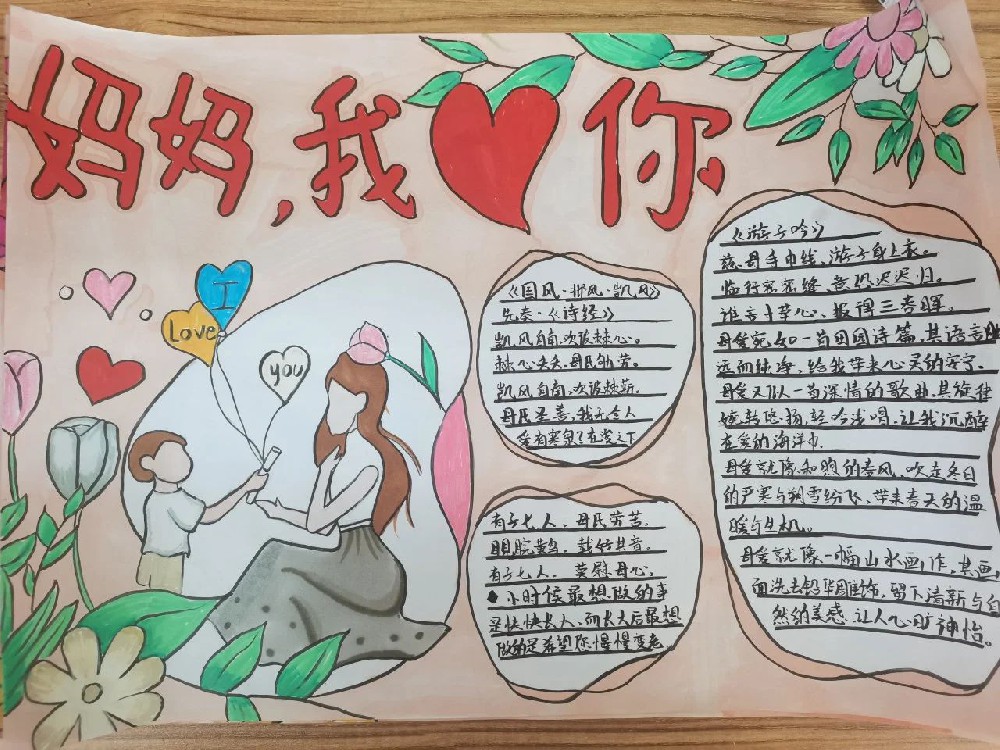 妈妈，我 你
I
Love
you
《国风·邶风·凯风》
先秦·《诗经》
凯风自南，吹彼棘心。
棘心夭夭，母氏劬劳。
凯风自南，吹彼棘薪。
母氏圣善，我无令人
爰有寒泉？在浚之下
有子七人，母氏劳苦。
睍睆黄鸟，载好其音。
有子七人，莫慰母心。
小时候最想做的事
是快快长大，而长大后最想
做的是希望您慢慢变老
《游子吟》
慈母手中线，游子身上衣。
临行密密缝，意恐迟迟归。
谁言寸草心，报得三春晖。
母爱宛如一首田园诗篇，其语言
远而纯净，给我带来心灵的安宁。
母爱又似一首深情的歌曲，其旋律
婉转悠扬，轻吟浅唱，让我沉醉
在爱的海洋中。
母爱就像和煦的春风，吹走冬日
的严寒与朔雪纷飞，带来春天的温
暖与生机。
母爱就像一幅山水画作，其画
面洗去铅华雕饰，留下清新与自
然的美感，让人心旷神怡。